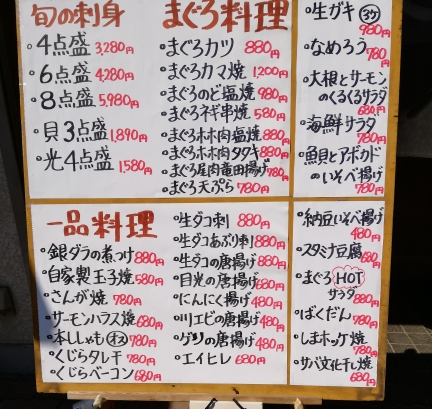 旬の刺身
・4点盛 3,280円
・6点盛 4,280円
・8点盛 5,980円
・貝3点盛 1,890円
・光4点盛 1,580円
まぐろ料理
・まぐろカツ 880円
・まぐろカマ焼 1,200円
・まぐろのど塩焼 980円
・まぐろネギ串焼 580円
・まぐろホホ肉塩焼 880円
・まぐろホホ肉タタキ 880円
・まぐろ尾肉竜田揚げ 780円
・まぐろ天ぷら 780円
・生ガキ 3ケ
980円
・なめろう 780円
・大根とサーモン
のくるくるサラダ
680円
・海鮮サラダ
780円
・魚貝とアボカド
のいそべ揚げ
780円
一品料理
・銀ダラの煮つけ 880円
・自家製玉子焼 580円
・さんが焼 780円
・サーモンハラス焼 680円
・本ししゃも オス 780円
・くじらタレ干 780円
・くじらベーコン 680円
・生ダコ刺 880円
・生ダコあぶり刺 880円
・生ダコの唐揚げ 880円
・目光の唐揚げ 680円
・にんにく揚げ 480円
・川エビの唐揚げ 480円
・ゲソの唐揚げ 480円
・エイヒレ 680円
・納豆いそべ揚げ
480円
・スタミナ豆腐
680円
・まぐろHOT
サラダ
880円
・ばくだん 780円
・しまホッケ焼
780円
・サバ文化干し焼
680円